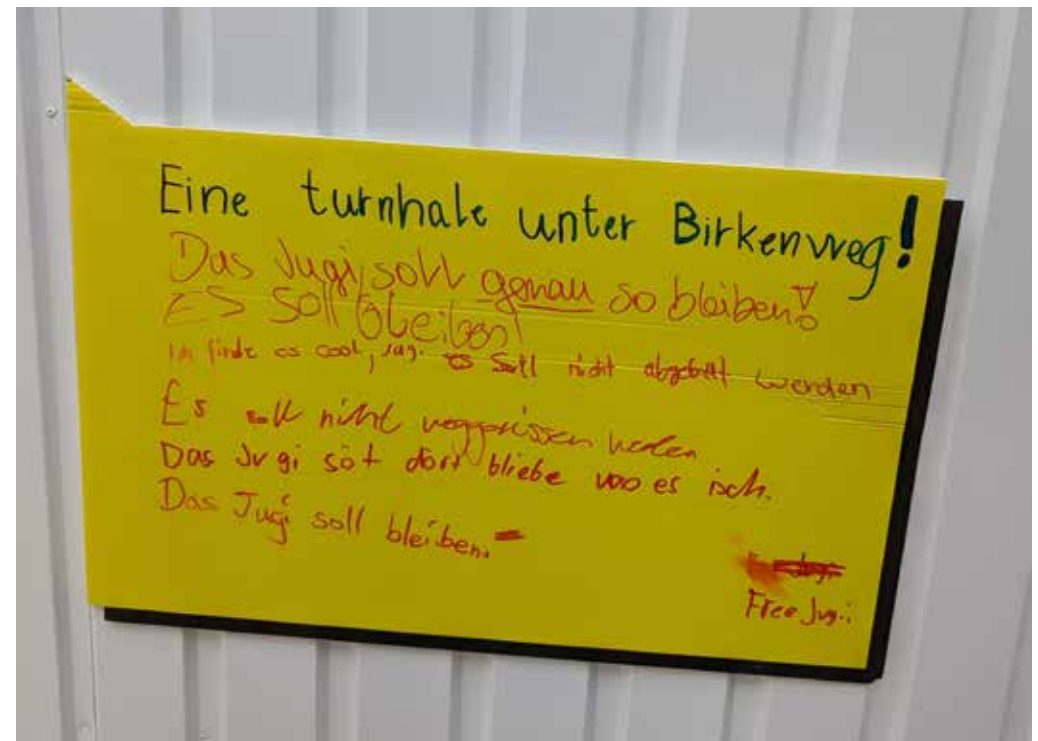 Eine turnhale unter Birkenweg!
Das Jugi soll genau so bleiben!
ES Soll bleiben!
Ich finde es cool, Jugi es Soll nicht werden
Es soll nicht weggerissen werden
Das Jugi söt dört bliebe woo es isch.
Das Jugi soll bleiben.
Free Jugi